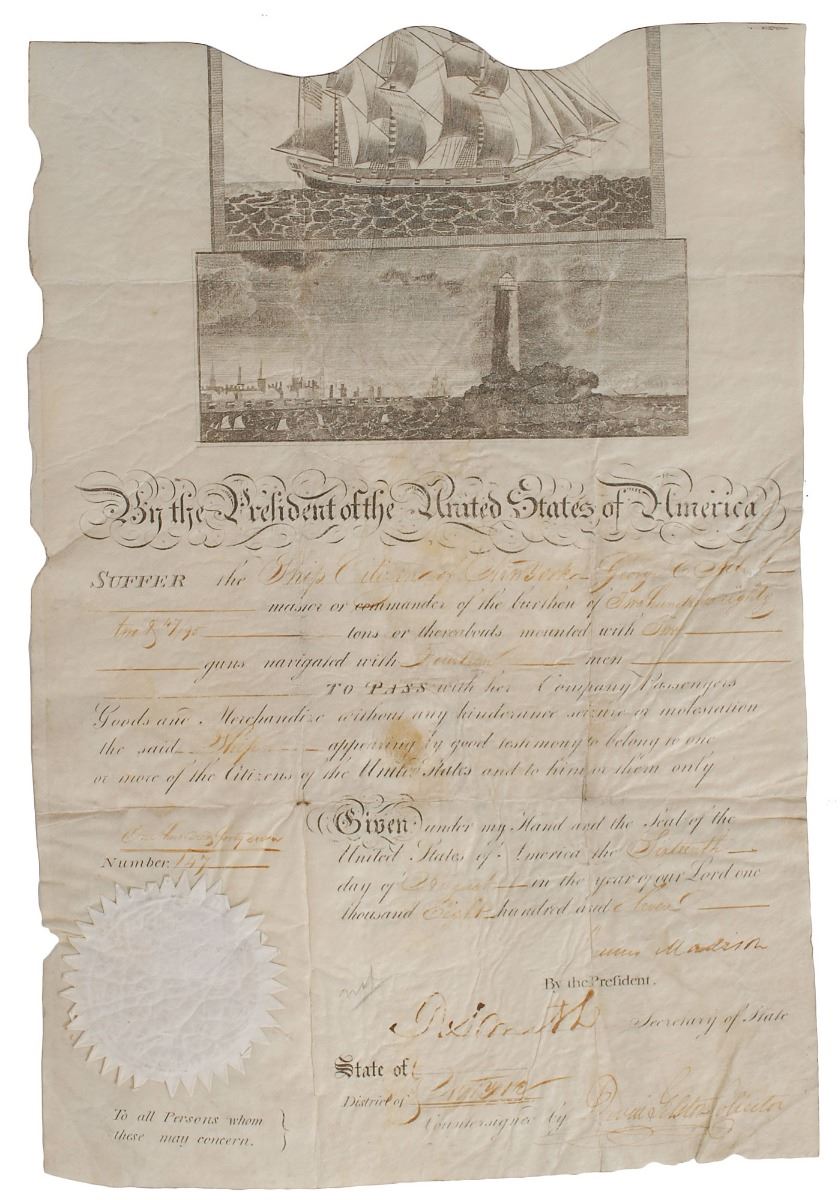 By the President of the United States of America
SUFFER the Ship Citizen of George C
master or commander of the burthen of Two hundred eighty
two & 47/95 tons or thereabouts mounted with Two
guns navigated with men
TO PASS with her Company Passengers
Goods and Merchandize without any hinderance seizure or molestation
the said Ship appearing by good testimony to belong to one
or more of the Citizens of the United States and to him or them only
Given under my Hand and the Seal of the
United States of America the
day of August in the year of our Lord one
thousand Eight hundred and eleven
One hundred forty seven
Number 147
James Madison
By the President.
R Smith Secretary of State
State of
District of
Countersigned by David Gelston
To all Persons whom
these may concern.